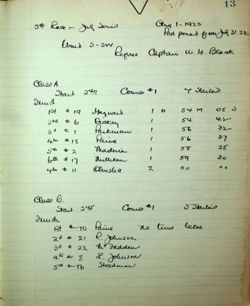 13
5th Race - July Series Aug 1-1923
Postponed from July 21.23.
Wind S-SW
Captain W. H. Black
Class A
Start 2 40 Course #1 7 Started
Finish
1st #19 Hayward 1 H 54 M 05 S
2nd # 1 54 42
3rd # 1 Parkman 1 56 32
4th #13 Paine 1 56 37
5th # 2 1 58 28
6th #17 1 59 30
# 11 2 00 00
Class B.
Start 2 45 Course #1 5 Starters
Finish
1st #70 Paine no time taken
2nd # 21 R. Johnson
3rd # 22 McFadden
4th # 8 L. Johnson
5th #76 Steedman